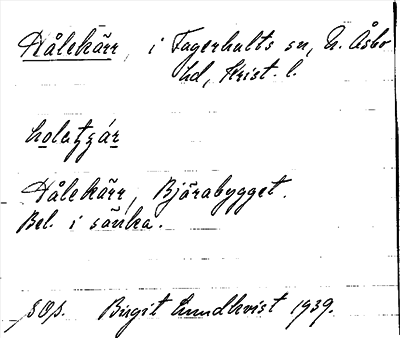 Hålekärr, i Fagerhults sn, N. Åsbo
hd, Krist. l.
Hålekärr, Björabygget.
Bel. i sänka.
SOp. Birgit Lundkvist 1939.